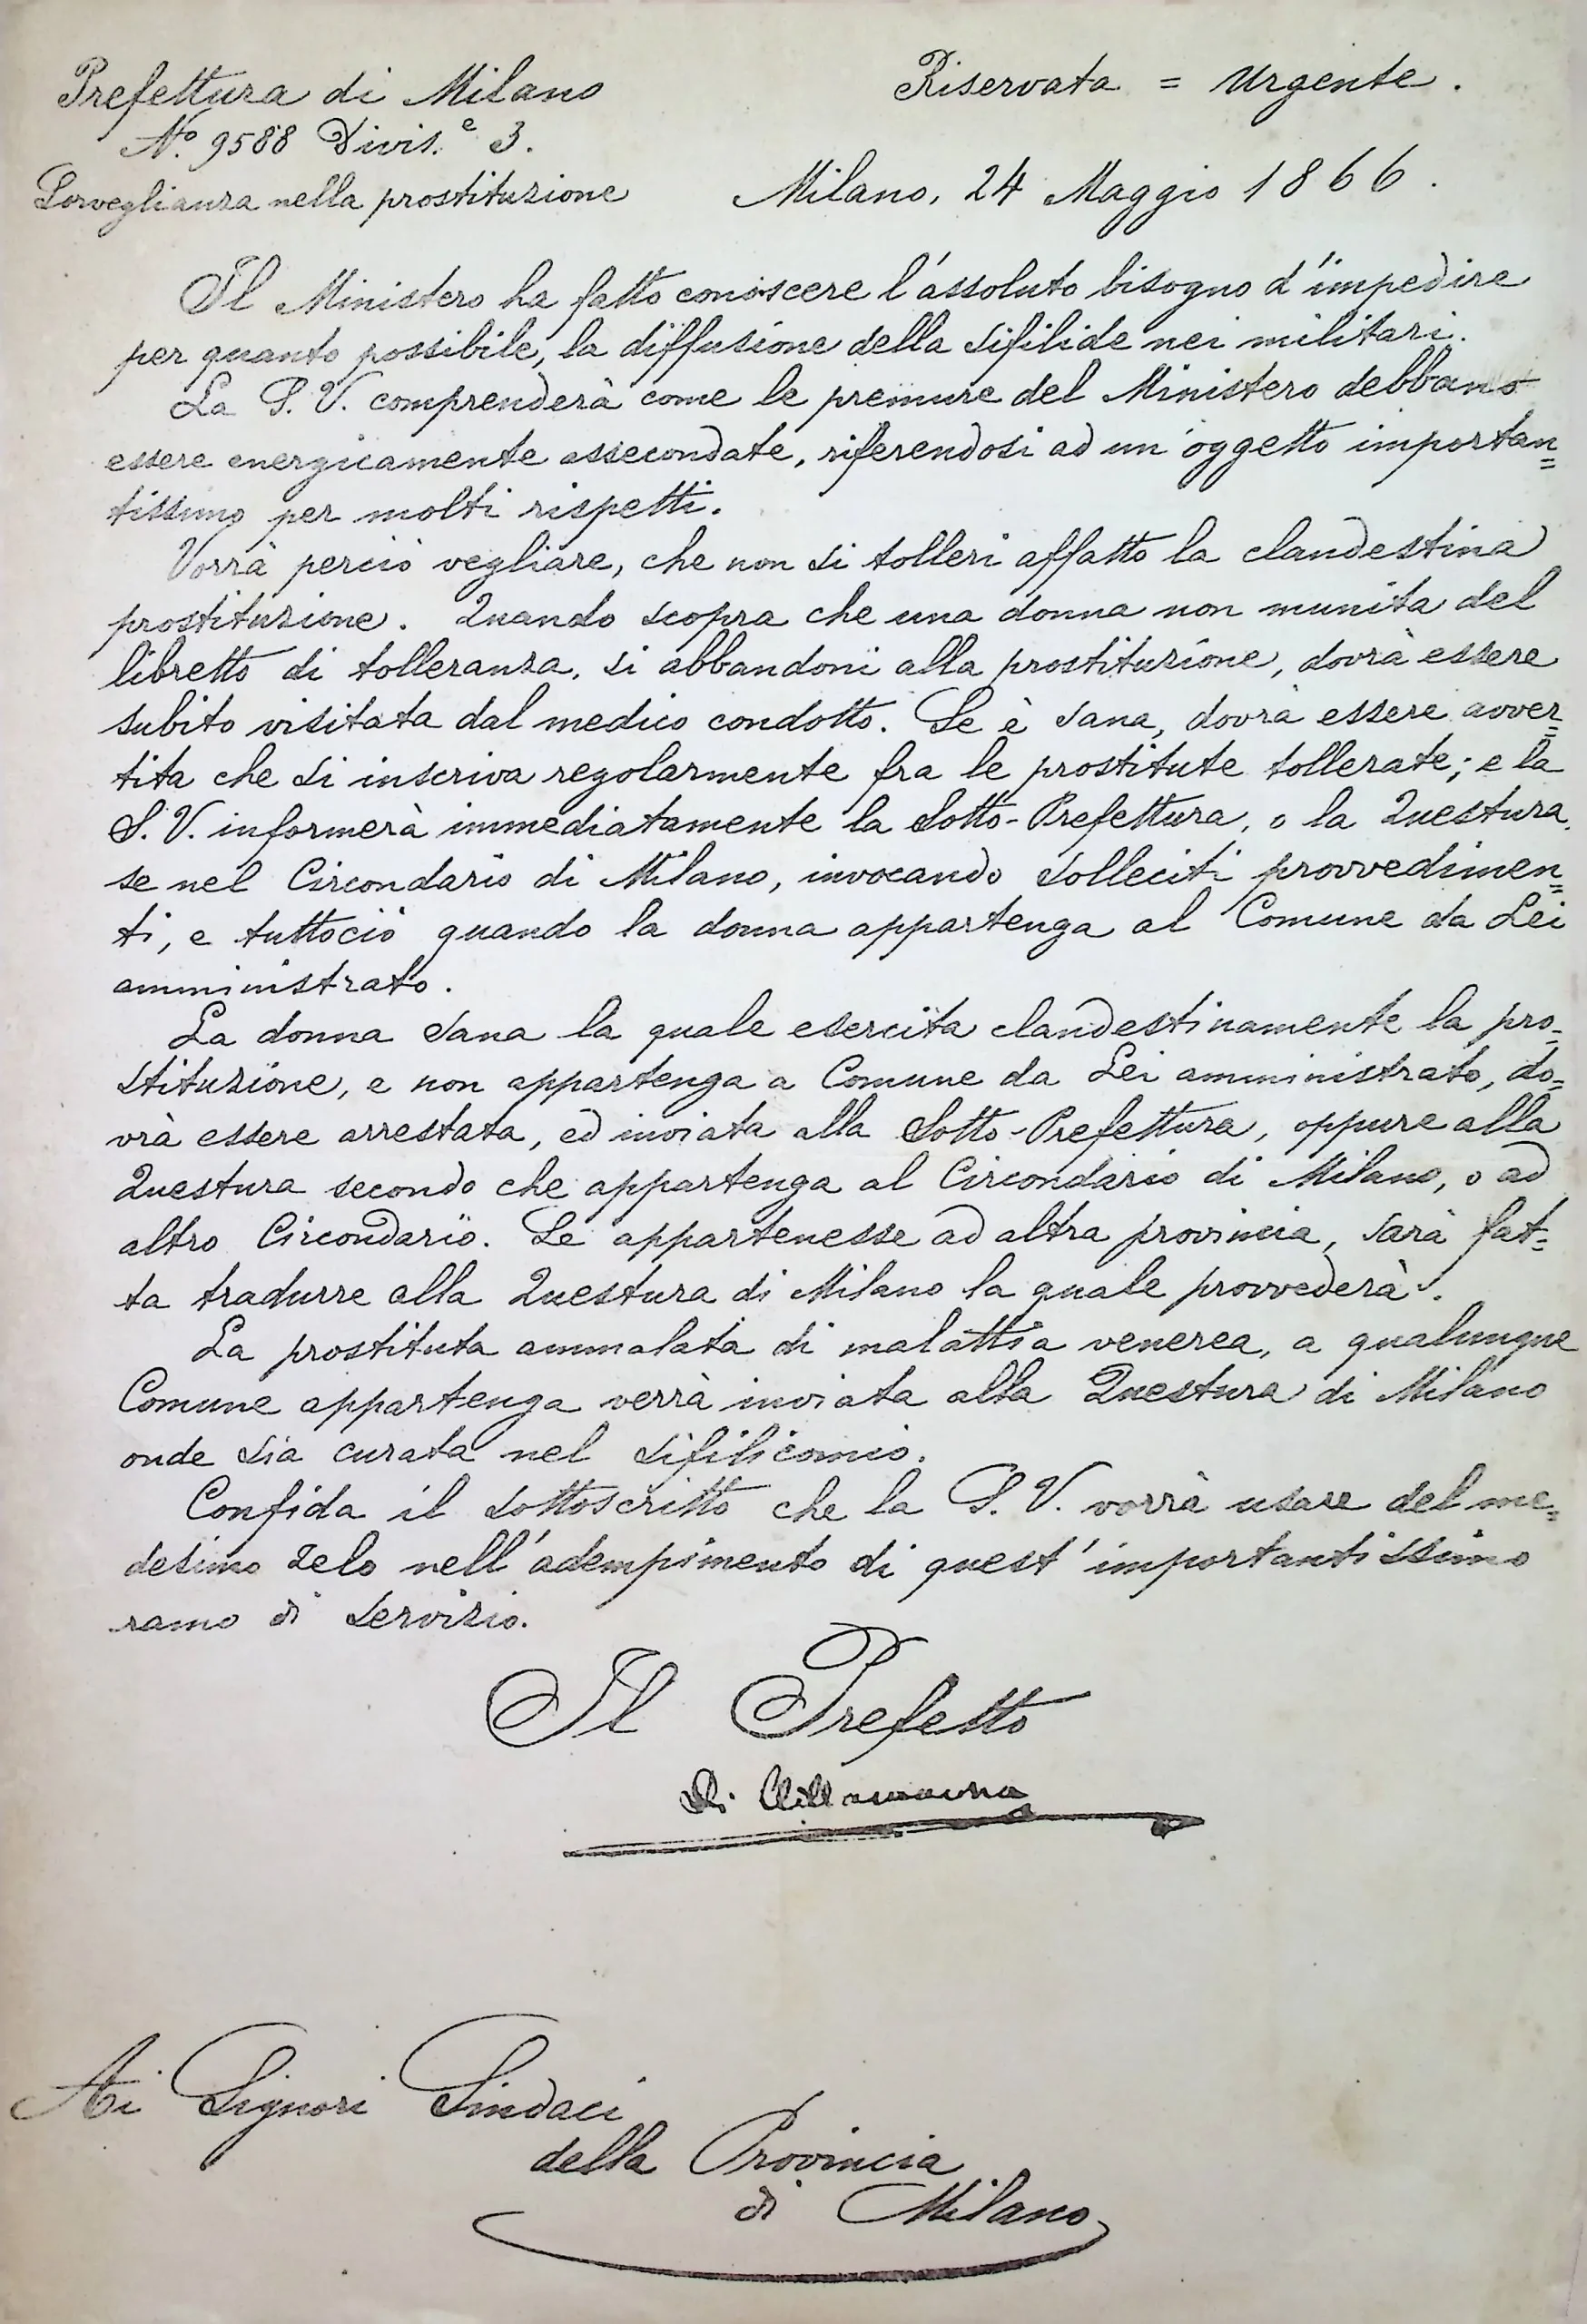 Prefettura di Milano
Riservata = Urgente.
N.º 9588 Divis.e 3.
Sorveglianza nella prostituzione
Milano, 24 Maggio 1866.
Il Ministero ha fatto conoscere l'assoluto bisogno d'impedire
per quanto possibile, la diffusione della sifilide nei militari.
La S. V. comprenderà come le premure del Ministero debbano
essere energicamente assecondate, riferendosi ad un oggetto importan=
tissimo per molti rispetti.
Vorrà perciò vegliare, che non si tolleri affatto la clandestina
prostituzione. Quando scopra che una donna non munita del
libretto di tolleranza, si abbandoni alla prostituzione, dovrà essere
subito visitata dal medico condotto. Se è sana, dovrà essere avver=
tita che si inscriva regolarmente fra le prostitute tollerate; e la
S. V. informerà immediatamente la Sotto-Prefettura, o la Questura,
se nel Circondario di Milano, invocando solleciti provvedimen=
ti, e tuttociò quando la donna appartenga al Comune da Lei
amministrato.
La donna sana la quale esercita clandestinamente la pro=
stituzione, e non appartenga a Comune da Lei amministrato, do=
vrà essere arrestata, ed inviata alla Sotto-Prefettura, oppure alla
Questura secondo che appartenga al Circondario di Milano, o ad
altro Circondario. Se appartenesse ad altra provincia, sarà fat=
ta tradurre alla Questura di Milano la quale provvederà.
La prostituta ammalata di malattia venerea, a qualunque
Comune appartenga verrà inviata alla Questura di Milano
onde sia curata nel sifilicomio.
Confida il sottoscritto che la S. V. vorrà usare del me=
desimo zelo nell'adempimento di quest'importantissimo
ramo di servizio.
Il Prefetto
Di Villamarina
Ai Signori Sindaci
della Provincia
di Milano